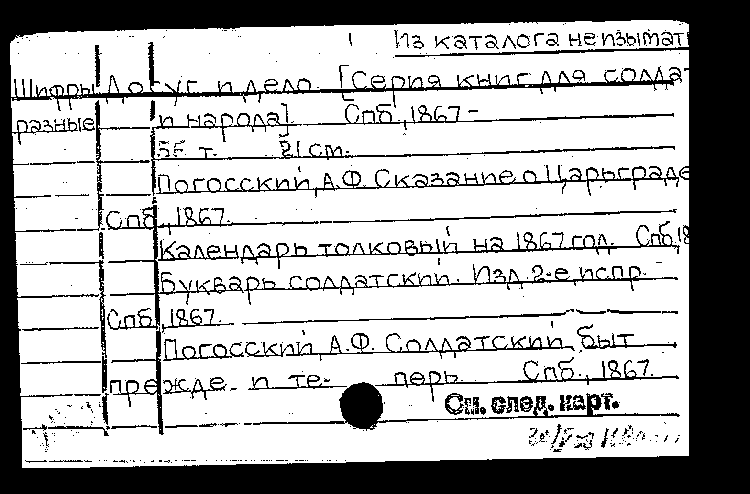 Из каталога не изымат
Шифры Досуг и дело. [Серия книг для солдат
разные и народа]. Спб., 1867-
21 cm.
Погосский, А.Ф. Сказание о Царьграде
Спб., 1867.
Календарь толковый на 1867 год. Спб, 18
Букварь солдатский. Изд. 2-е, испр. -
Спб., 1867.
Погосский, А.Ф. Солдатский быт
прежде и те- перь. Спб., 1867.
См. след. карт.